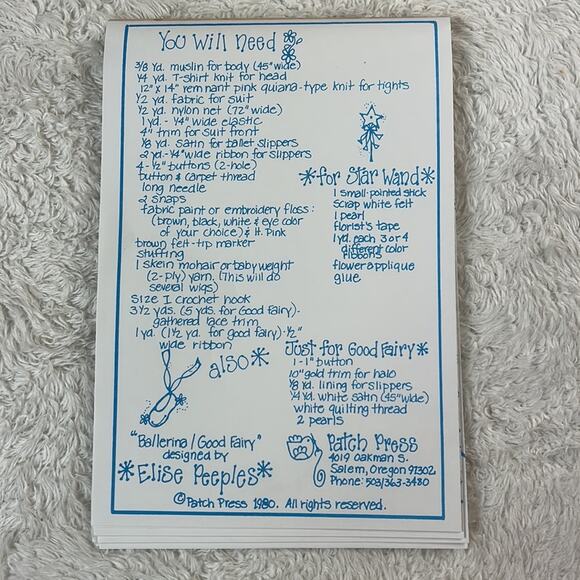 You Will Need
3/8 Yd. muslin for body (45" wide)
1/4 yd. T-shirt knit for head
12" x 14" remnant pink quiana-type knit for tights
1/2 yd. fabric for suit
1/2 yd. nylon net (72" wide)
1 yd. - 1/4" wide elastic
4" trim for suit front
1/8 yd. satin for ballet slippers
2 yd. - 1/4" wide ribbon for slippers
4 - 1/2" buttons (2-hole)
button & carpet thread
long needle
2 snaps
fabric paint or embroidery floss:
(brown, black, white & eye color
of your choice) & lt. Pink
brown felt-tip marker
stuffing
1 skein mohair or baby weight
(2-ply) yarn. (This will do
several wigs)
Size I crochet hook
3 1/2 yds. (5 yds. for Good Fairy) -
gathered lace trim
1 yd. (1 1/2 yd. for good fairy) - 1/2"
wide ribbon
*for Star Wand*
1 small-pointed stick
scrap white felt
1 pearl
florist's tape
1 yd. each 3 or 4
different color
ribbons
flower applique
glue
also*
Just for Good Fairy*
1 - 1" button
10" gold trim for halo
1/8 yd. lining for slippers
1/4 yd. white satin (45" wide)
white quilting thread
2 pearls
"Ballerina/Good Fairy"
designed by
*Elise Peeples*
Patch Press
4019 Oakman S.
Salem, Oregon 97302
Phone: 503/363-3480
©Patch Press 1980. All rights reserved.